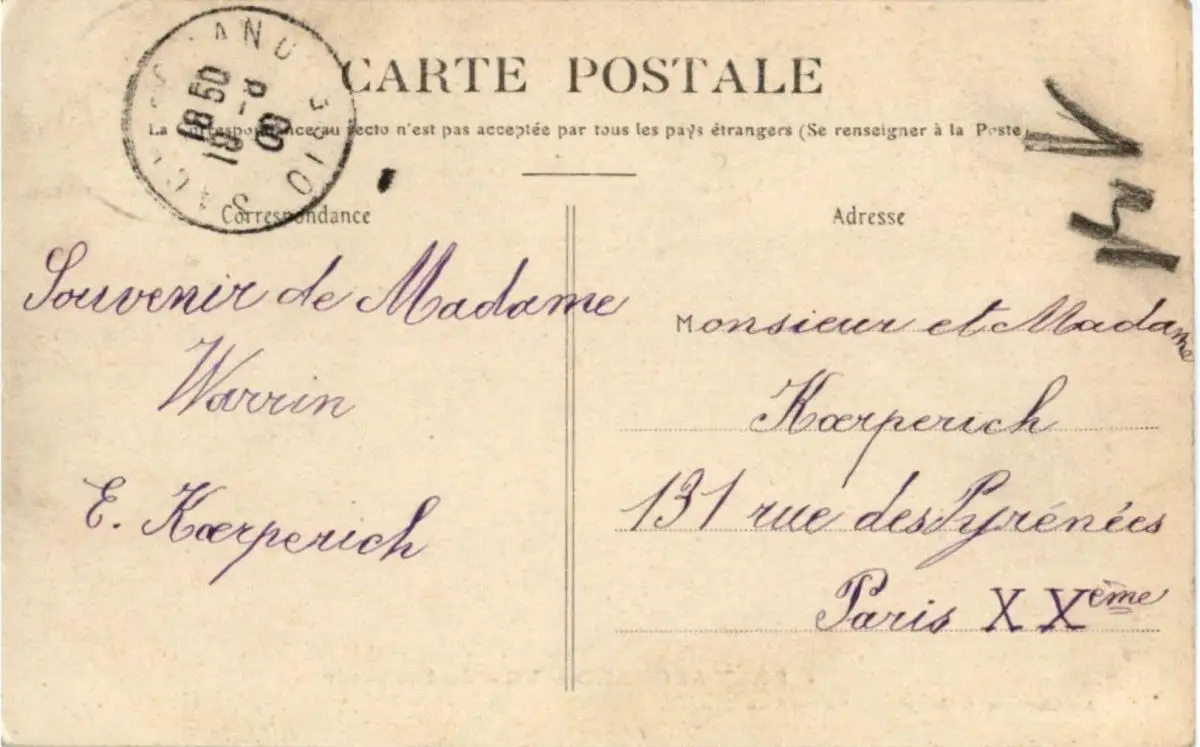 CARTE POSTALE
La Correspondance au recto n'est pas acceptée par tous les pays étrangers (Se renseigner à la Poste)
Correspondance
Souvenir de Madame
Warrin
E. Kœrperich
Adresse
Monsieur et Madame
Kœrperich
131 rue des Pyrénées
Paris XXème
18 50
18
09